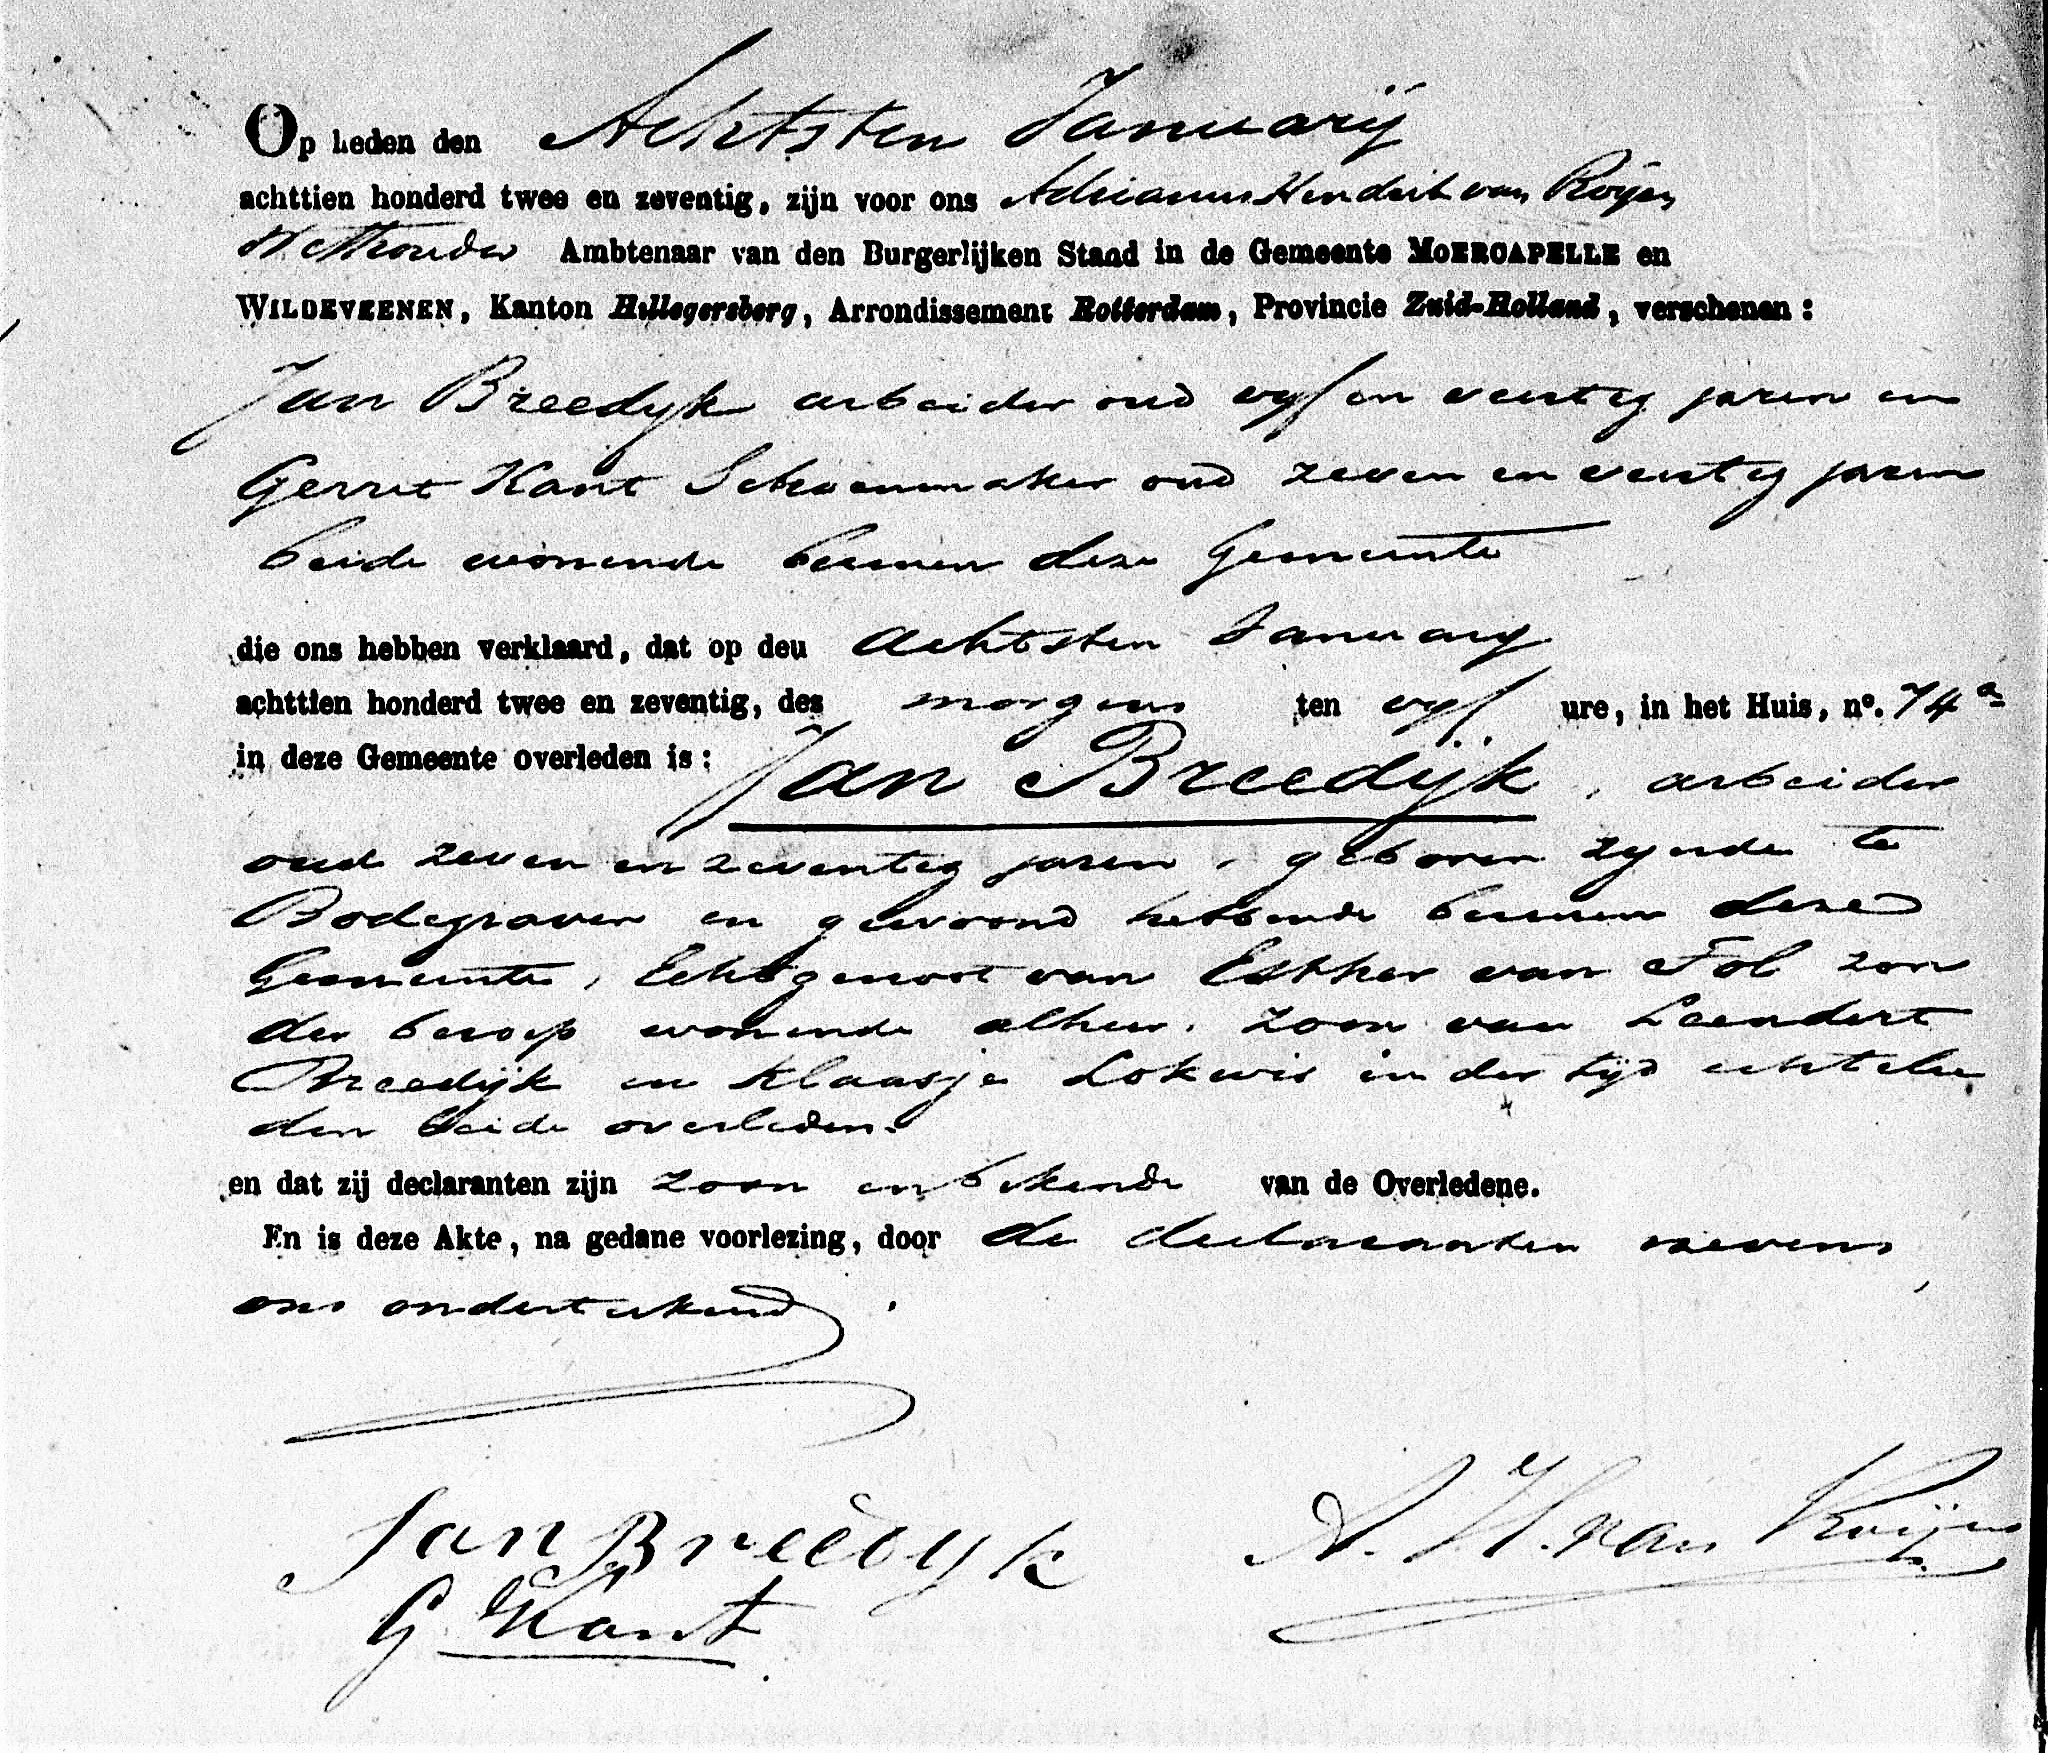 Op heden den Achtsten Januarij
achttien honderd twee en zeventig, zijn voor ons Adrianus Hendrik van Roijen
Wethouder Ambtenaar van den Burgerlijken Stand in de Gemeente MOERCAPELLE en
WILDEVEENEN, Kanton Hillegersberg, Arrondissement Rotterdam, Provincie Zuid-Holland, verschenen:
Jan Breedyk arbeider oud vyf en veertig jaren en
Gerrit Kant Schoenmaker oud zeven en veertig jaren
beide wonende binnen deze Gemeente
die ons hebben verklaard, dat op den achtsten Januarij
achttien honderd twee en zeventig, des morgens ten vyf ure, in het Huis, no. 74a
in deze Gemeente overleden is: Jan Breedijk, arbeider
oud zeven en zeventig jaren, geboren zynde te
Bodegraven en gewoond hebbende binnen deze
Gemeente, Echtgenoot van Esther van Tol zon
der beroep wonende alhier. Zoon van Leendert
Breedijk en Klaasje Lokwis in der tijd echtelie
den beide overleden.
en dat zij declaranten zijn zoon en bekende van de Overledene.
En is deze Akte, na gedane voorlezing, door de declaranten nevens
ons onderteekend.
Jan Breedyk
A. H. van Roijen
G Kant